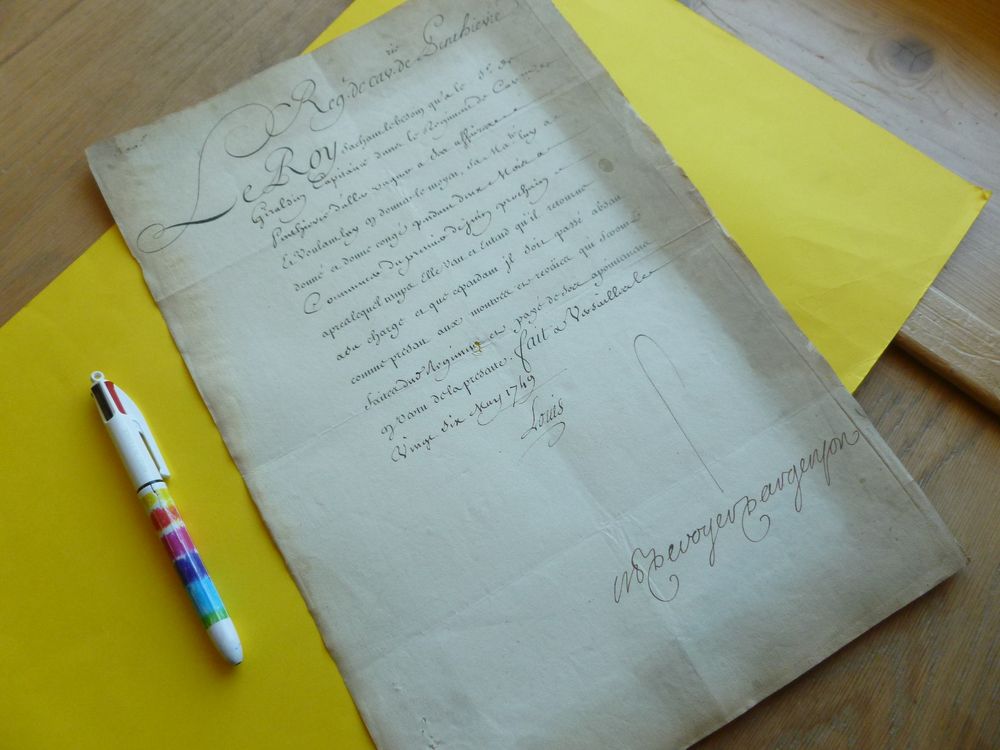 Reg.t de cav.rie de Penthievre
Le Roy sachant le besoin qu'a le S.r de
Giraldin Capitaine dans le Regiment de Cav.rie de
Penthievre d'aller vaquer a ses affaires
Et Voulant luy en donner le moyen, Sa Ma.té luy a
donné et donne congé pendant deux Mois a
Commencer du premier de juin prochain
apres lequel temps Elle veut et Entend qu'il retourne
a sa charge et que cependant il soit passé absent
comme present aux montres et reveües qui seront
faites dud. Regiment et payé de ses apointemens
en vertu de la presente. fait a Versailles le
Vingt six May 1749
Louis
M. P. de voyer d'argenson